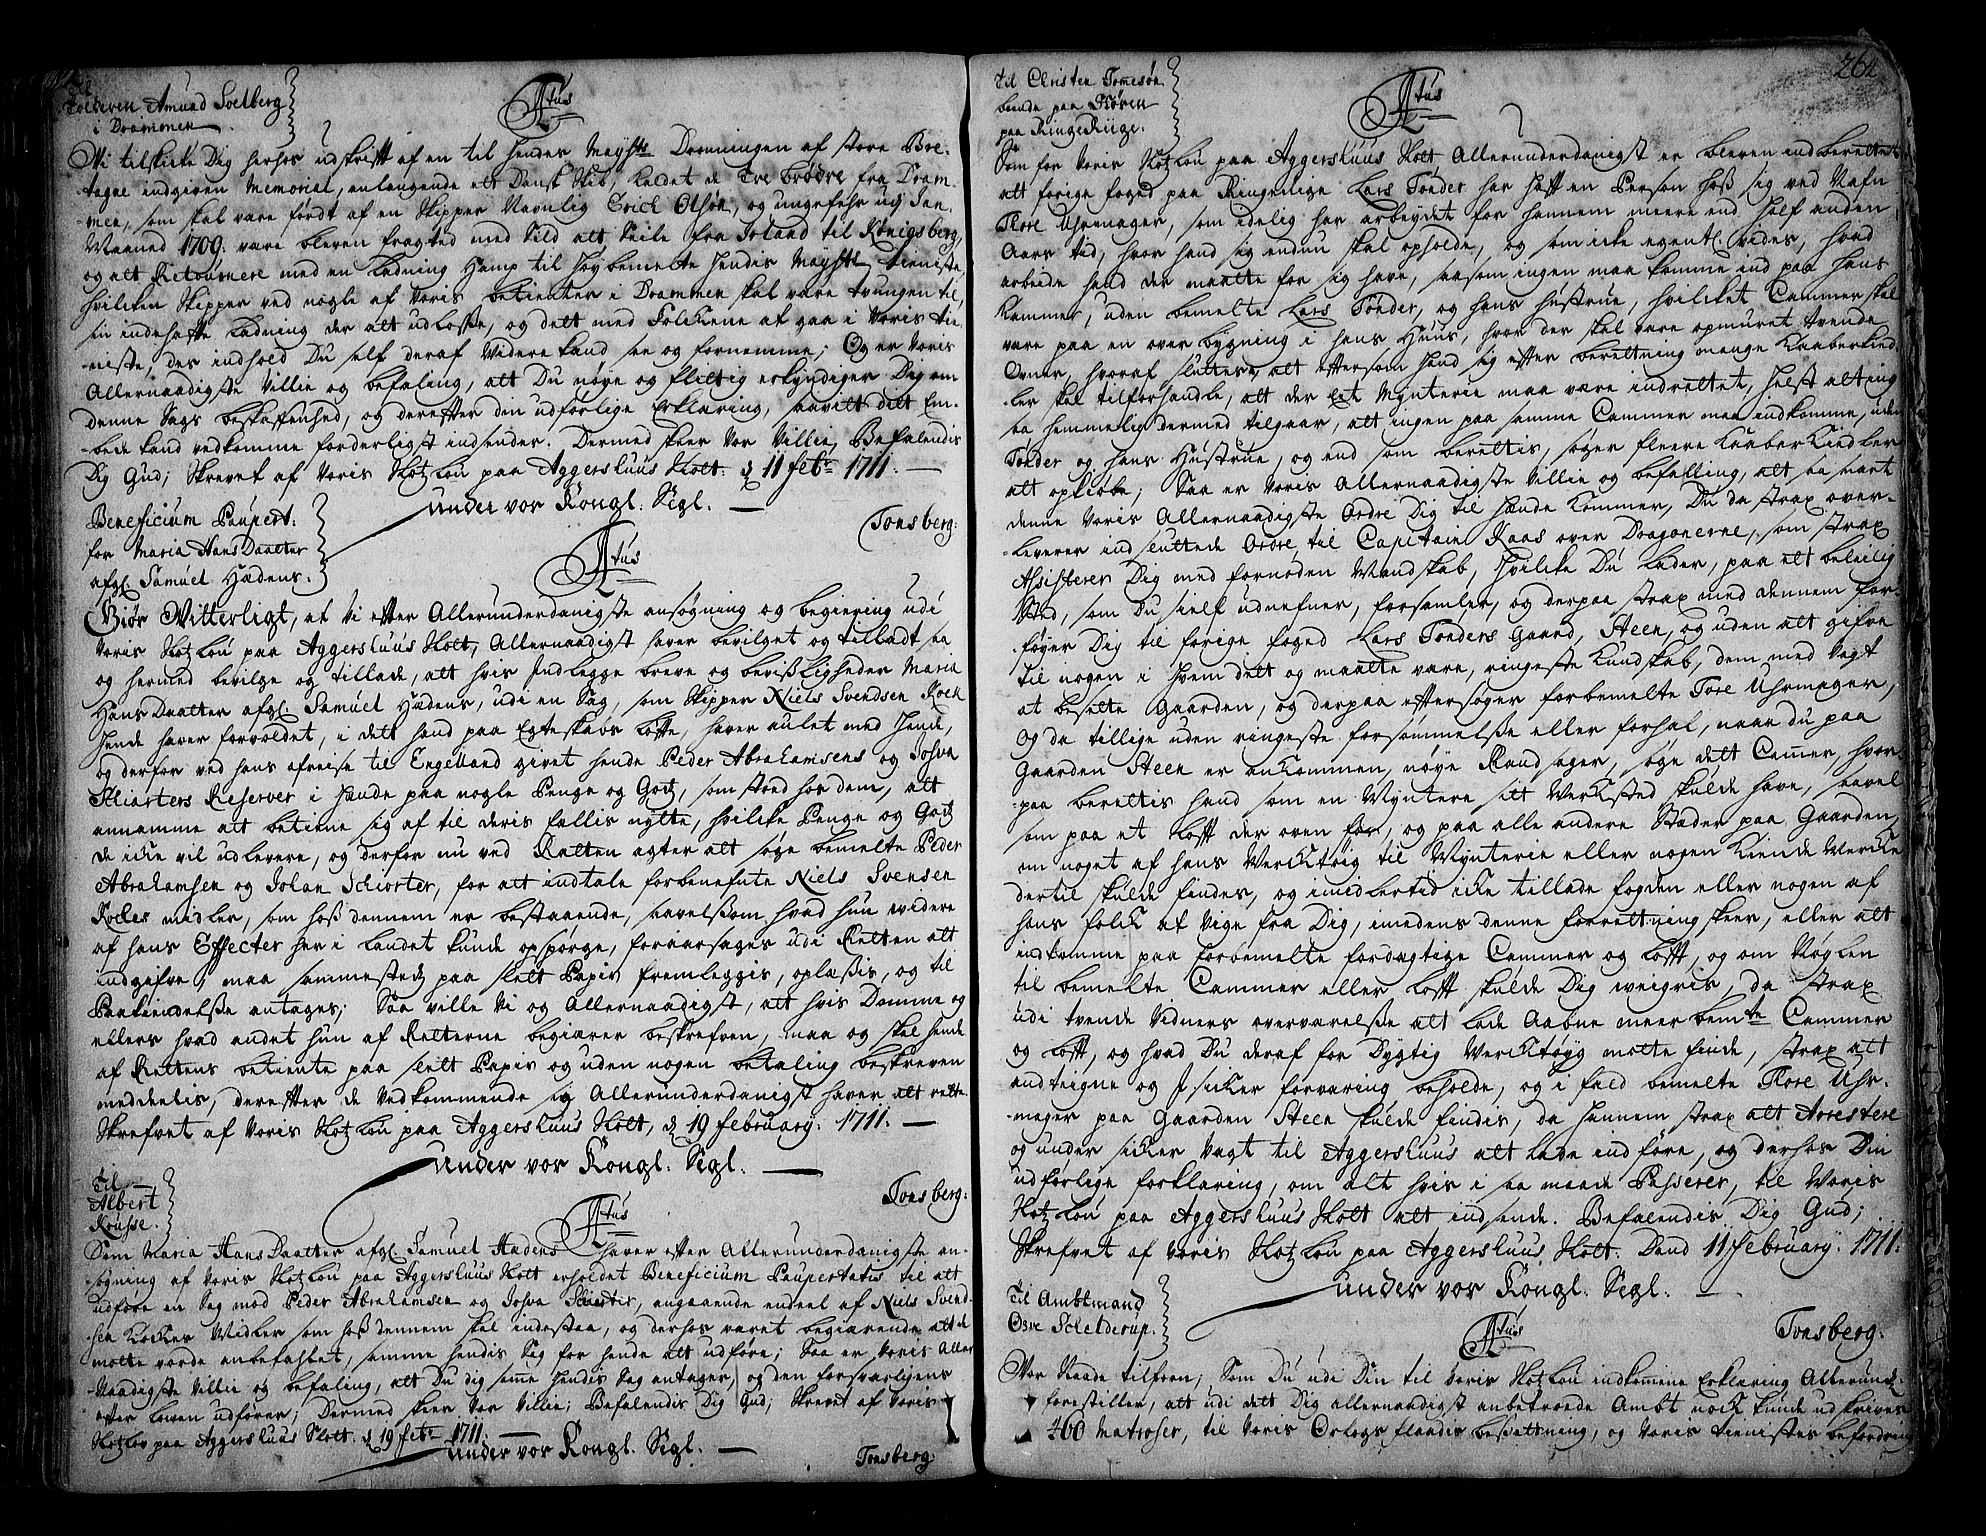 Til
Tolderen Amund Soelberg
i Drammen
Atus
Vi tilskicke Dig herhos udskrifft af en til Hendes Mayhts Dronningen af store Bre-
tagne indgiven Memorial, anlangende ett Dansk Skib, kaldet de Tre Brødre fra Dram-
men, som skal være ført af en Skipper Navnlig Erich Olsøn, og ungefehr udj Jan.
Maaned 1709. være bleven fragted med Sild att Seile fra Irland til Königsberg,
og att Retournere med en Ladning Hamp til Høybemelte Hendis Mayhts tieniste,
hvilcken Skipper ved nogle af Voris betienter i Drammen skal være tvungen til,
sin indehaffte Ladning der att udlosse, og dett med Folckene at gaa i Voris tie-
niste, des indhold Du self deraf Videre kand see og fornemme; Og er Voris
Allernaadigste Villie og befaling, att Du nøye og flittig erkyndiger Dig om
denne Sags beskaffenhed, og dereffter din udførlige Erklæring, saavitt ditt Em-
bede kand vedkomme forderligst indsender. Dermed skeer Vor Villie, Befalendis
Dig Gud; Skrevet af Voris Slotzlou paa Aggershuus Slott. d 11 febr 1711.
under vor Kongl. Segl.
Tonsberg.
Beneficium Paupert:
for Maria HansDaatter
afgl. Samuel Hadens.
Atus
Giør Vitterligt, at Vi efter Allerunderdanigste ansøgning og begiering udi
Voris Slotzlou paa Aggershuus Slott, Allernaadigst haver bevilget og tilladt saa
og hermed bevilge og tillade, att hvis Indlegge breve og bevißligheder Maria
HansDaatter afgl. Samuel Hadens, udi en Sag, som Skipper Niels Svendsen Kock
Hende haver forvoldet, i dett hand paa Egteskabs løfte, haver aulet med Hende,
og derfor ved hans afreise til Engelland givet hende Peder Abrahamsens og Josva
Skiørters Reserver i Hænde paa nogle Penge og Gotz, som stod hos dem, att
annamme att betiene sig af til deris fællis nytte, hvilcke Penge og Gotz
de icke vil udlevere, og derfor nu ved Retten agter att søge bemelte Peder
Abrahamsen og Johan Schiørter, for att indtale forbenefnte Niels Svensen
Kockes midler, som hoß dennem er bestaaende, saavelsom hvad hun widere
af hans Effecter her i Landet kunde opspørge, foraarsages udi Retten att
indgifve, maa sammestedz paa slett Papir fremleggis, oplæßis, og til
Paakiendelße antages; Saa ville Vi og Allernaadigst, att hvis Domme og
ellers hvad andet hun af Retterne begiærer beskrefven, maa og skal hende
af Rettens betiente paa slett Papir og uden nogen betaling beskreven
meddeelis, dereffter de Vedkommende sig Allerunderdanigst haver att rette.
Skrefvet af Voris Slotzlou paa Aggershuus Slott, d 19 february: 1711.
under vor Kongl. Segl.
Tonsberg:
Til
Albert
Rousse.
Atus
Som Maria HansDaatter afgl. Samuel Hadens haver efter Allerunderdanigste an-
søgning af Voris Slotzlou paa Aggershuus Slott erholdet Beneficium Paupertatis til att
udføre en Sag mod Peder Abrahamsen og Josva Skiørter, angaaende endeel af Niels Svend-
sen Kockes Midler som hoß dennem skal indestaa, og derhos været begiærende att de
motte vorde anbefahlet, samme hendis Sag for hende att udføre; Saa er Voris Aller
Naadigste Villie og befaling, att Du dig samme hendis Sag antager, og den forsvarligens
efter loven udfører; Dermed skeer Vor Villie; Befalendis Dig Gud; Skrevet af Voris
Slotzlov paa Aggershuus Slott. d 19 febr 1711.
under vor Kongl. Segl.
Tonsberg:
262
Til Christen Tomesøn
boende paa Støren
paa RingeRiige.
Atus
Som for Voris Slotzlou paa Aggershuus Slott Allerunderdanigst er bleven indberettet
att forige foged paa Ringeriige Lars Tønder har hafft en Person hoß sig ved Nafn
Tore Uhrmager, som idelig har arbeydet for hannem meere end half anden
Aars tid, hvor hand sig endnu skal opholde, og som icke egentl. vides, hvad
arbeide hand der maatte for sig have, saasom ingen maa komme ind paa hans
Kammer, uden bemelte Lars Tønder, og hans hustrue, hvilcket Cammer skal
være paa en over bygning i hans Huus, hvor der skal være opmuret tvende
Ovner, hvoraf sluttes, att eftersom Hand sig efter beretning mange Kaaberkied-
ler skal tilforhandle, att der ett Mynterie maa være indrettet, helst alting
saa hemmelig dermed tilgaar, att ingen paa samme Cammer maa indkomme, uden
Tønder og hans Hustrue, og end som berettis, søger fleere Kaaber Kiedler
att opkiøbe; Saa er Voris Allernaadigste Villie og befalling, att saa snart
denne Voris Allernaadigste Ordre Dig til Hænde kommer, Du da strax over-
leverer indsluttede Ordre til Capitain Kaas over Dragonerne, som strax
Assisterer Dig med fornøden Mandskab, Hvilcke Du lader, paa att beleilig
Sted, som Du sielf udnefner, forsamler, og derpaa strax med dennem for-
føyer Dig til forige foged Lars Tønders Gaard, Steen, og uden att gifve
til nogen i Hvem dett og maatte være, ringeste Kundskab, dem med Vagt
at besette Gaarden, og derpaa eftersøger forbemelte Tore Uhrmager,
Og da tillige uden ringeste forsømmelße eller forhal, naar du paa
Gaarden Steen er ankommen, nøye Randsager, søge dett Camer, hvor-
paa berettis hand som en Myntere sitt Werksted skulde have, saavel
som paa et Lofft der oven for, og paa alle andere Stæder paa Gaarden,
om noget af hans Wercktøig til Mynterie eller nogen kiende Wercke
dertil skulde findes, og imidlertid icke tillade fogden eller nogen af
hans folck at Vige fra Dig, imedens denne forrettning skeer, eller att
indkomme paa forbemelte fordægtige Cammer og Lofft, og om Nøglen
til bemelte Cammer eller Lofft skulde Dig weigris, da strax
udi tvende Vidners overværelße att lade Aabne meer bemte Cammer
og Lofft, og hvad Du deraf for Dygtig Wercktøyg motte finde, strax att
andteigne og I sicker forvaring beholde, og i fald bemelte Tore Uhr-
mager paa Gaarden Steen skulde findis, da hannem strax att Arrestere
og under sicker Vagt til Aggershuus att lade indføre, og derhos Din
udførlige forklaring, om alt hvis i saa maade Passerer, til Voris
Slotzlou paa Aggershuus Slott att indsende. Befalendis Dig Gud;
Skrefvet af Voris Slotzlou paa Aggershuus Slott. Dend 11 february: 1711.
under vor Kongl. Segl.
Tonsberg:
Til Ambtmand
Ove Schelderup.
Atus
Vor Naade tilforn; Som Du udi Din til Voris Slotzlou indkomne Erklæring Allerund:
forestiller, att udi dett Dig allernaadigst anbetroede Ambt nock kunde udskrives
400 Matroser, til Voris Orlogs flaadis beßetning, og Voris tienistes befordring